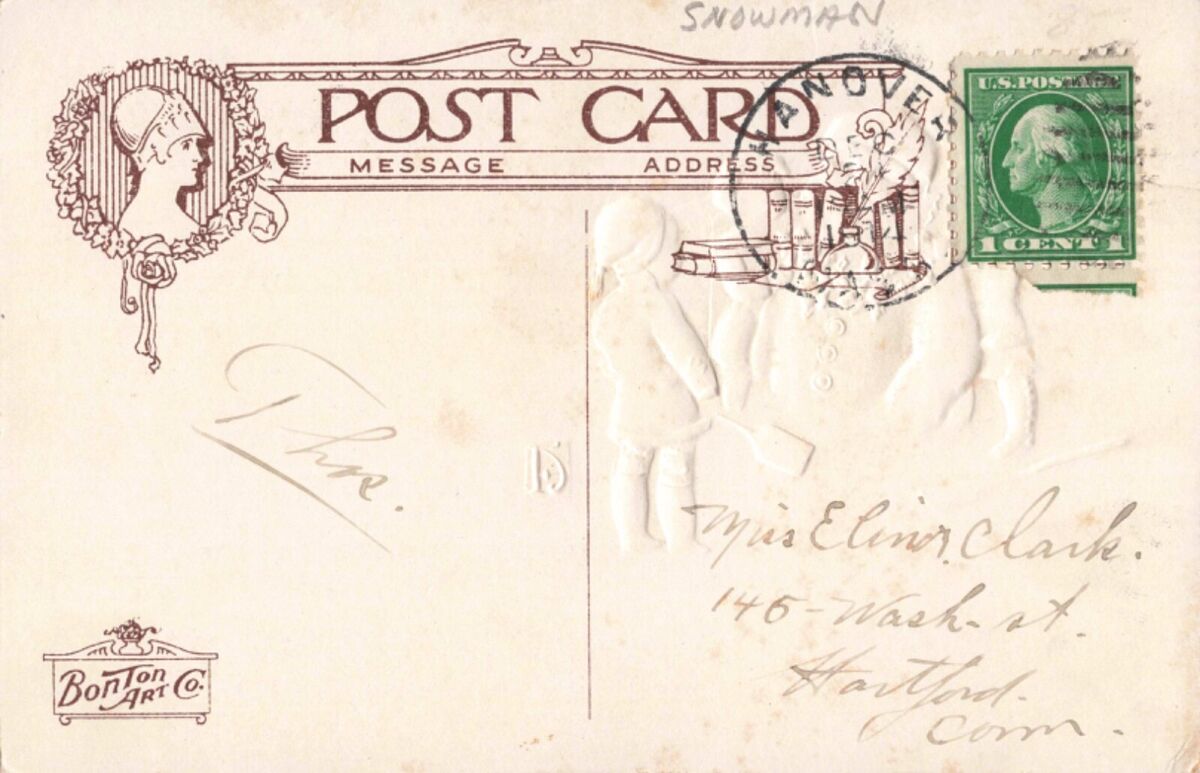 SNOWMAN
POST CARD
MESSAGE ADDRESS
HANOVE
U.S. POSTAGE
1 CENT 1
Thos.
Miss Elinor Clark.
145-Wash-st.
Hartford.
Conn.
BonTon
Art Co.